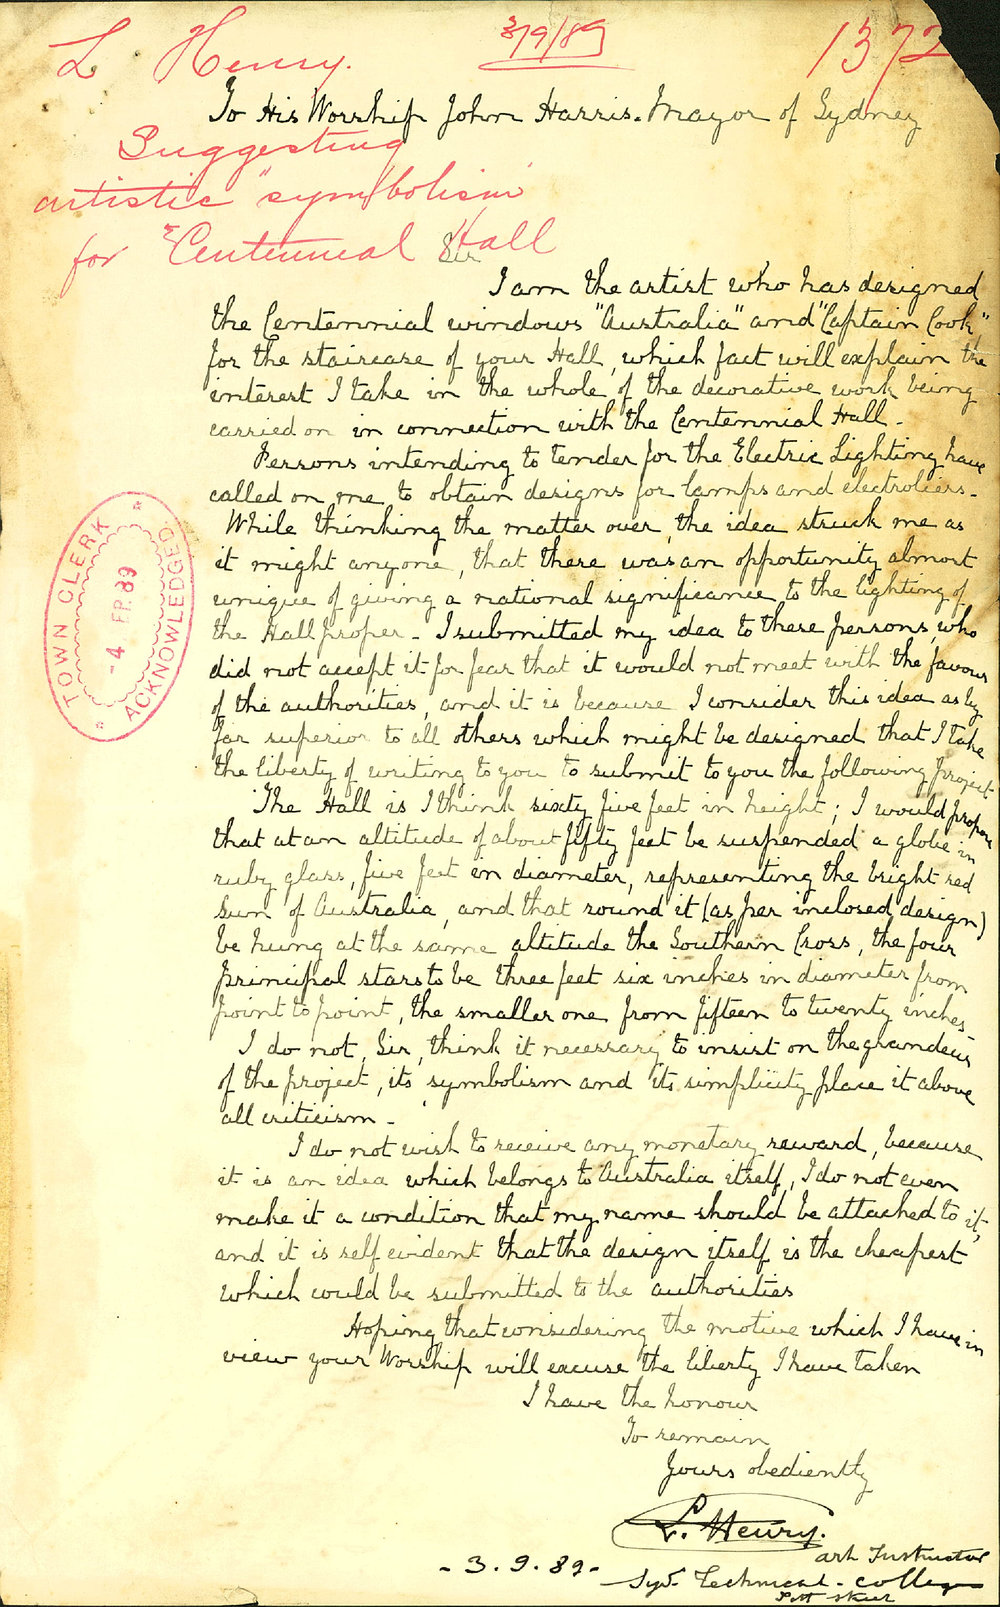 L Henry.
3/9/89
1372
To His Worship John Harris. Mayor of Sydney
Suggesting
artistic "symbolism"
for Centennial Hall
Sir
I am the artist who has designed
the Centennial windows "Australia" and "Captain Cook"
for the staircase of your Hall, which fact will explain the
interest I take in the whole of the decorative work being
carried on in connection with the Centennial Hall.
Persons intending to tender for the Electric Lighting have
called on me to obtain designs for lamps and electroliers.
While thinking the matter over, the idea struck me as
it might anyone, that there was an opportunity almost
unique of giving a national significance to the lighting of
the Hall proper. I submitted my idea to these persons, who
did not accept it for fear that it would not meet with the favour
of the authorities, and it is because I consider this idea as by
far superior to all others which might be designed that I take
the liberty of writing to you to submit to you the following project.
The Hall is I think sixty five feet in height; I would propose
that at an altitude of about fifty feet be suspended a globe in
ruby glass, five feet in diameter, representing the bright red
Sun of Australia, and that round it (as per inclosed design)
be hung at the same altitude the Southern Cross, the four
principal stars to be three feet six inches in diameter from
point to point, the smaller one from fifteen to twenty inches.
I do not, Sir, think it necessary to insist on the grandeur
of the project, its symbolism and its simplicity place it above
all criticism.
I do not wish to receive any monetary reward, because
it is an idea which belongs to Australia itself, I do not even
make it a condition that my name should be attached to it,
and it is self evident that the design itself is the cheapest
which could be submitted to the authorities
Hoping that considering the motive which I have in
view your Worship will excuse the liberty I have taken
I have the honour
To remain
Yours obediently
L. Henry.
art Instructor
- 3. 9. 89 -
Syd. Technical. College
Pitt Street
TOWN CLERK
-4 EP. 89
ACKNOWLEDGED